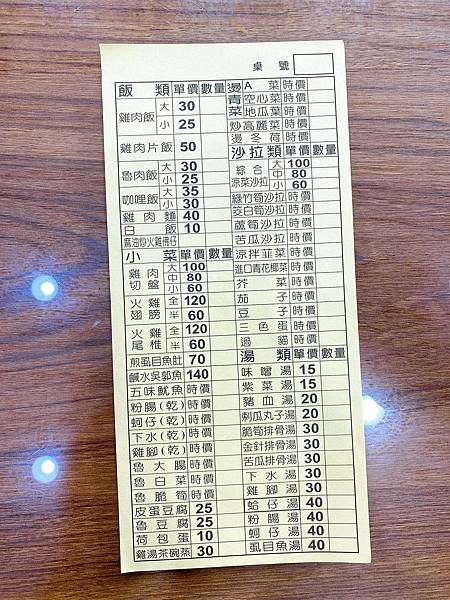 桌號
飯類 單價 數量
雞肉飯 大 30
小 25
雞肉片飯 50
魯肉飯 大 30
小 25
咖哩飯 大 35
小 30
雞肉麵 40
白飯 10
麻油炒火雞佛仔
小菜 單價 數量
雞肉切盤 大 100
中 80
小 60
火雞翅膀 全 120
半 60
火雞尾椎 全 120
半 60
煎虱目魚肚 70
鹹水吳郭魚 140
五味魷魚 時價
粉腸(乾) 時價
蚵仔(乾) 時價
下水(乾) 時價
雞腳(乾) 時價
魯大腸 時價
魯白菜 時價
魯脆筍 時價
皮蛋豆腐 25
魯豆腐 25
荷包蛋 10
雞湯茶碗蒸 30
燙青菜 A菜 時價
空心菜 時價
地瓜葉 時價
炒高麗菜 時價
燙冬荷 時價
沙拉類 單價 數量
綜合涼菜沙拉 大 100
中 80
小 60
綠竹筍沙拉 時價
茭白筍沙拉 時價
蘆筍沙拉 時價
苦瓜沙拉 時價
涼拌韮菜 時價
進口青花椰菜 時價
芥菜 時價
茄子 時價
豆子 時價
三色蛋 時價
過貓 時價
湯類 單價 數量
味噌湯 15
紫菜湯 15
豬血湯 20
刺瓜丸子湯 20
脆筍排骨湯 30
金針排骨湯 30
苦瓜排骨湯 30
下水湯 30
雞腳湯 30
蛤仔湯 40
粉腸湯 40
蚵仔湯 40
虱目魚湯 40